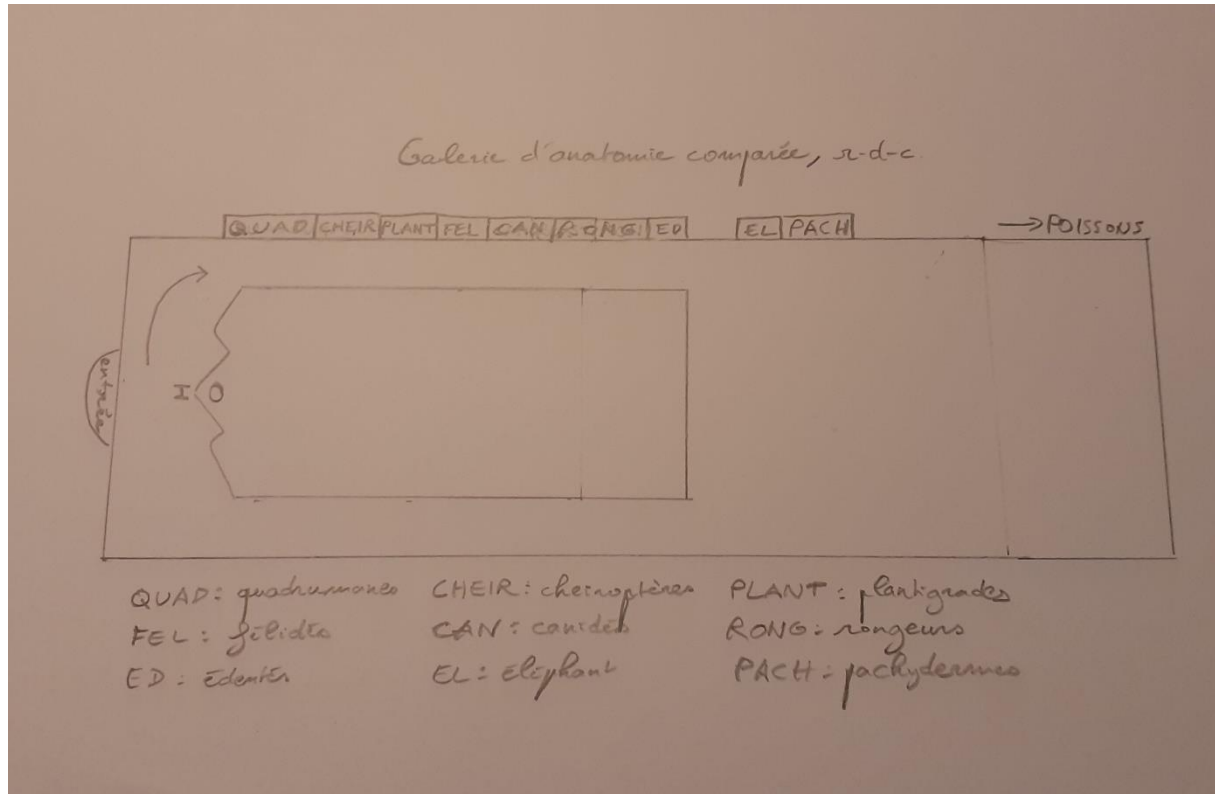 Galerie d'anatomie comparée, r-d-c.
QUAD CHEIR PLANT FEL CAN RONG ED EL PACH → POISSONS
entrée
H O
QUAD : quadrumanes CHEIR : cheiroptères PLANT : plantigrades
FEL : félidés CAN : canidés RONG : rongeurs
ED : édentés EL : éléphant PACH : pachydermes